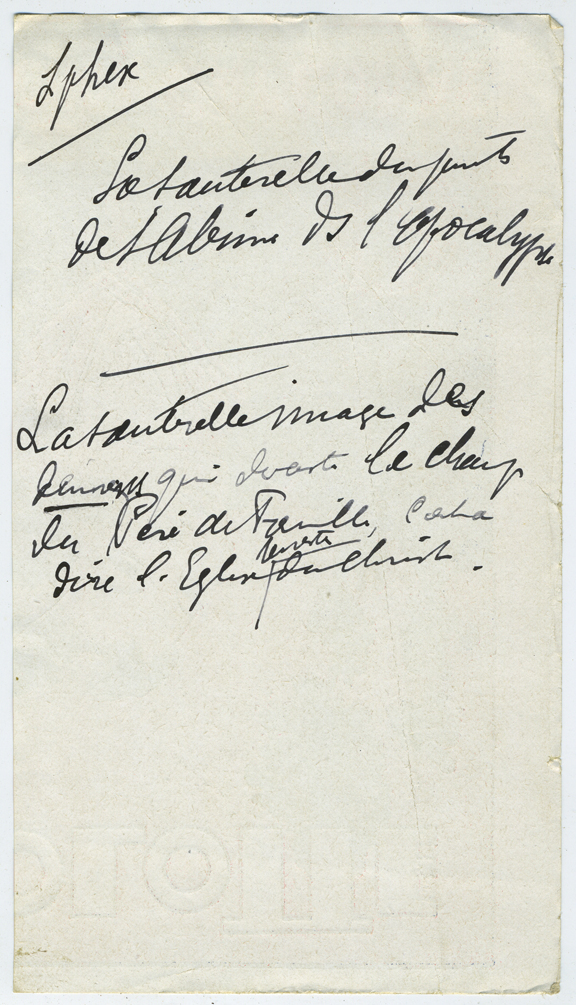 Sphex
La Sauterelle du puits
de l'Abime ds l'apocalypse
La sauterelle image des
démons qui devaste le champ
du Père de Famille, c'est à
dire l'Eglise terrestre du Christ.